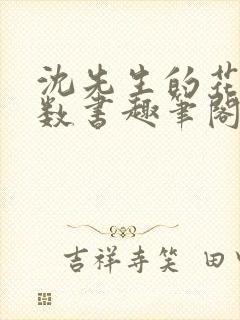 沈先生的花
数书趣笔阁
吉祥寺笑 田